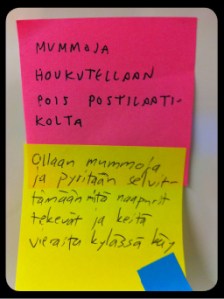 MUMMOJA
HOUKUTELLAAN
POIS POSTILAATI-
KOLTA
Ollaan mummoja
ja pyritään selvit-
tämään mitä naapurit
tekevät ja keitä
vieraita kylässä käy